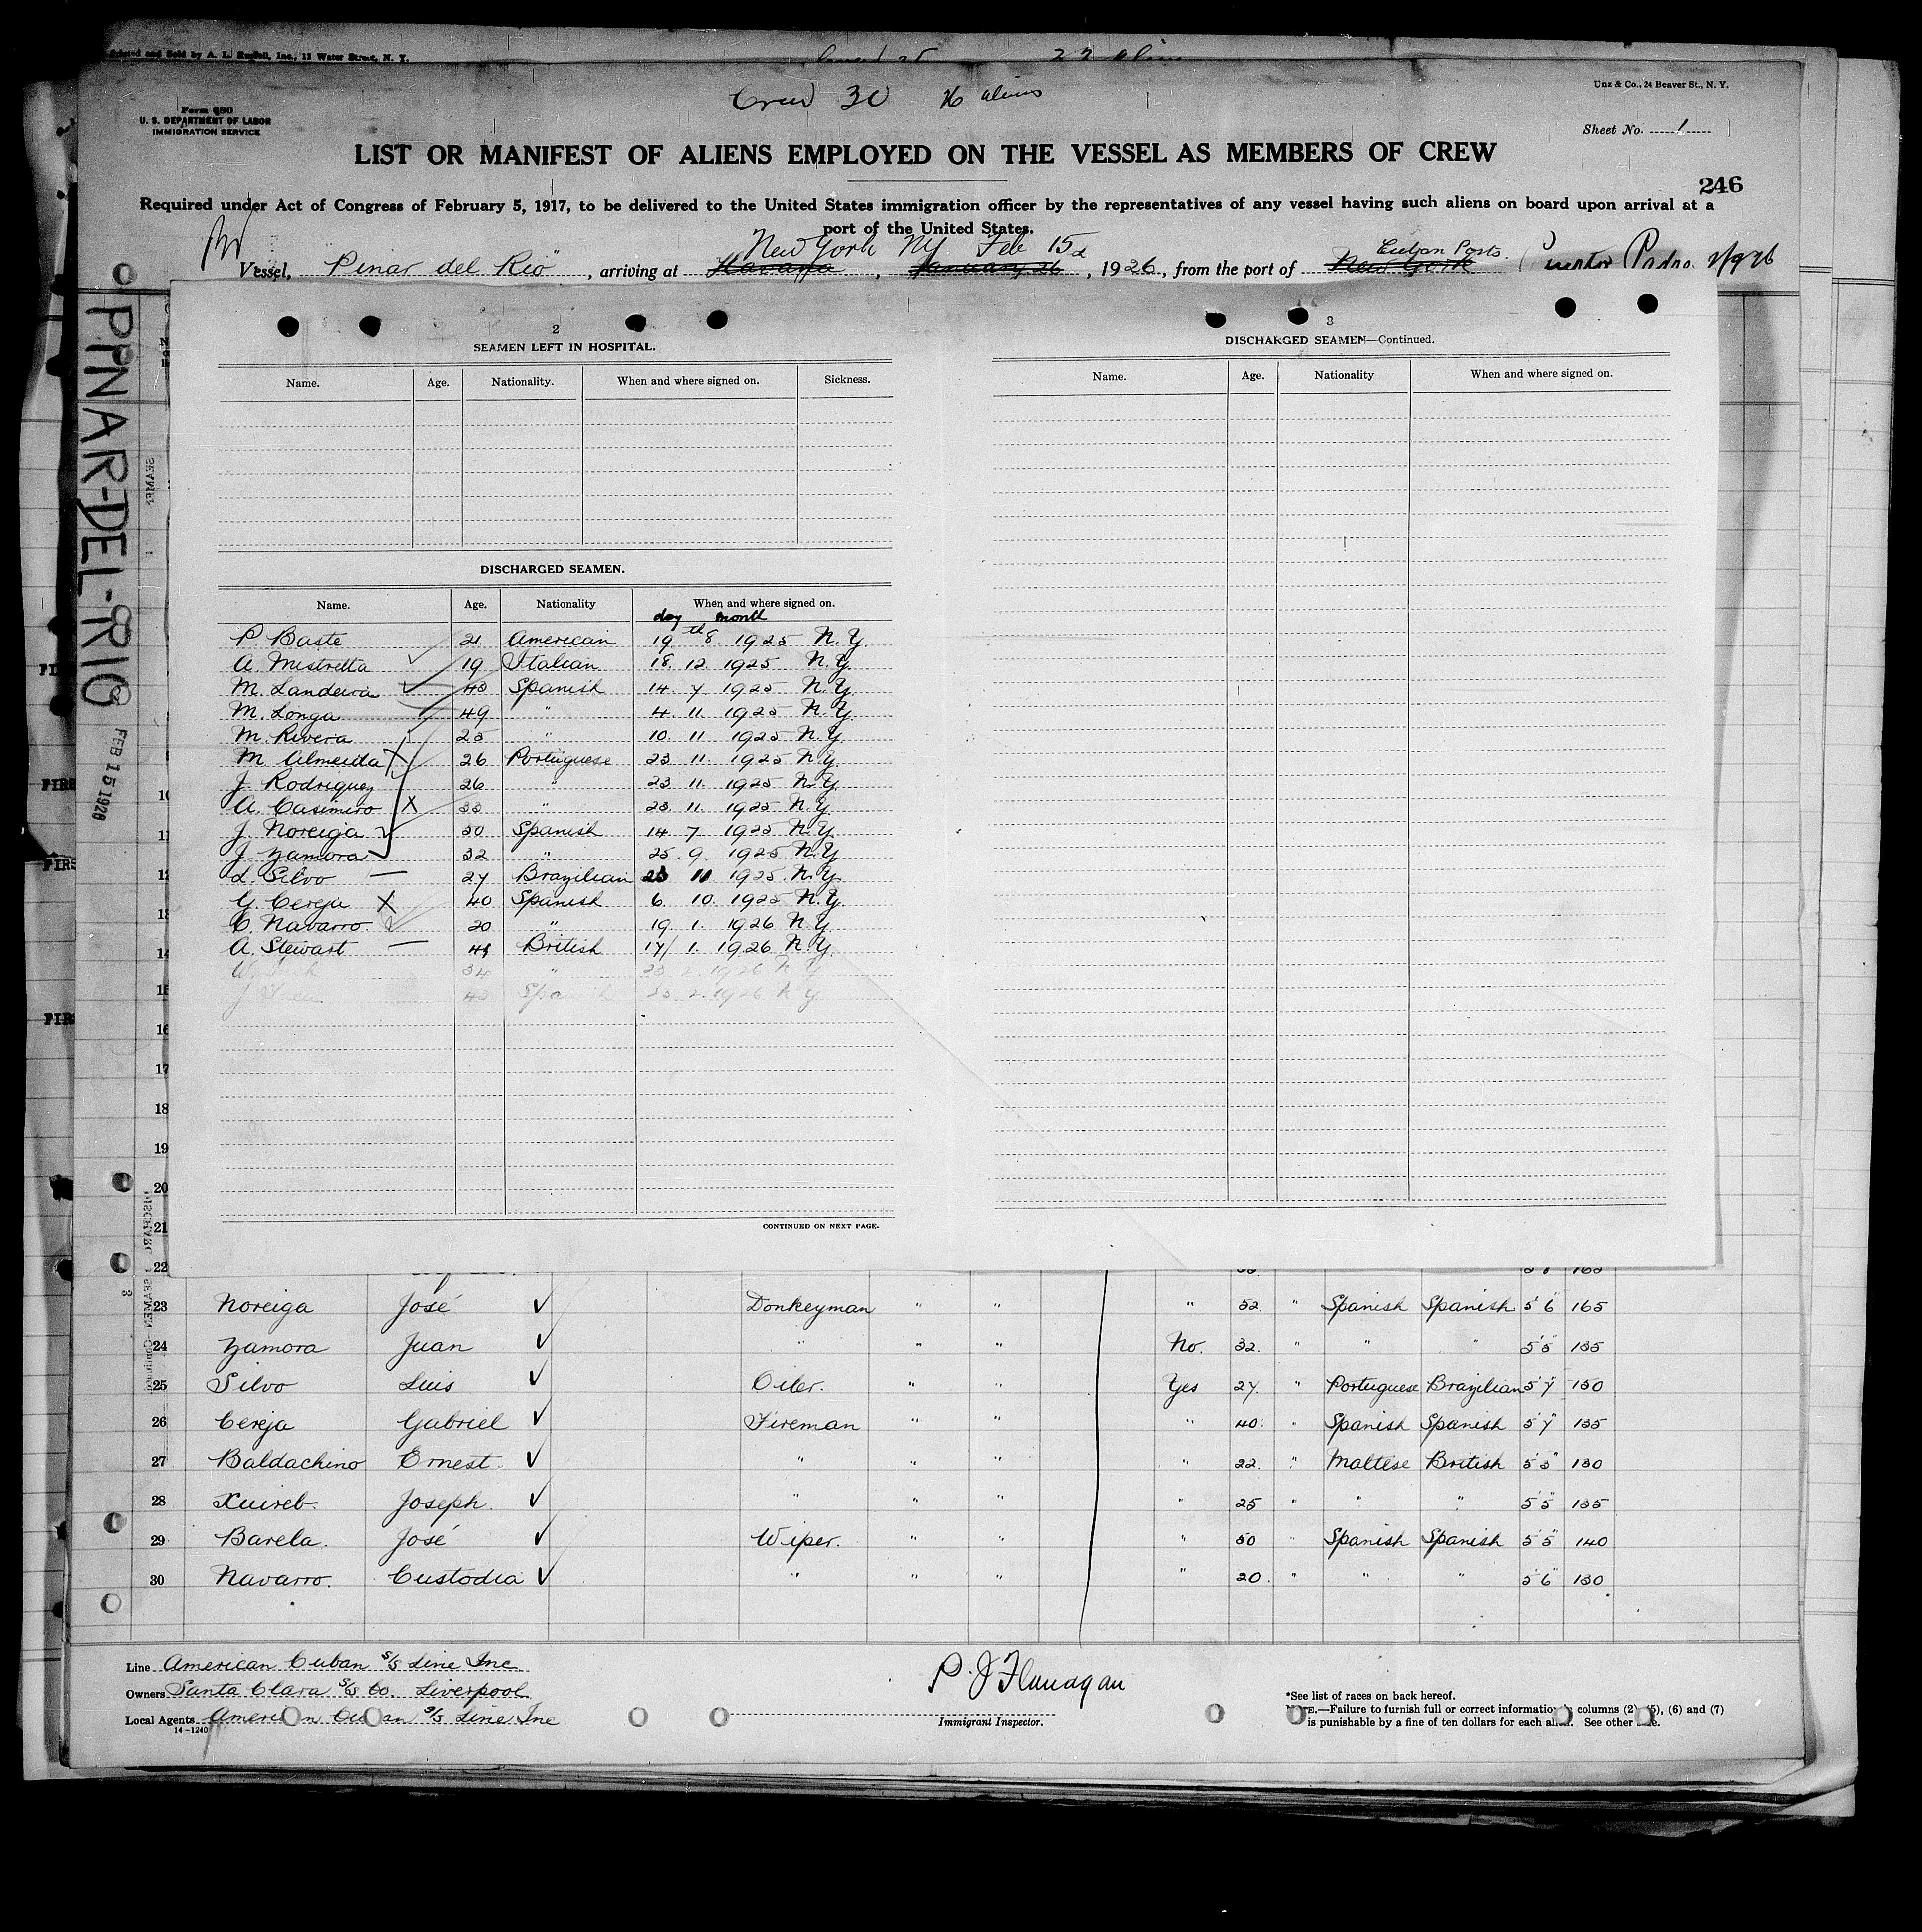 Printed and Sold by A. L. Russell, Inc., 12 Water Street, N. Y.
Crew 30 16 aliens
Unz & Co., 24 Beaver St., N. Y.
Form 680
U. S. DEPARTMENT OF LABOR
IMMIGRATION SERVICE
Sheet No. 1
LIST OR MANIFEST OF ALIENS EMPLOYED ON THE VESSEL AS MEMBERS OF CREW
246
Required under Act of Congress of February 5, 1917, to be delivered to the United States immigration officer by the representatives of any vessel having such aliens on board upon arrival at a
port of the United States.
New York NY Feb 15 Cuban Ports
Vessel, "Pinar del Rio", arriving at Havana, January 26, 1926, from the port of New York Puerto Padre 2/9/26
PPNAR-DEL-RIO
FEB 15 1926
2
SEAMEN LEFT IN HOSPITAL.
Name. Age. Nationality. When and where signed on. Sickness.
DISCHARGED SEAMEN.
Name. Age. Nationality When and where signed on.
day month
P. Baste 21 American 19 th 8. 1925 N.Y.
A. Mistretta 19 Italian 18. 12. 1925 N.Y.
M. Landeira 43 Spanish 14. 7 1925 N.Y.
M. Longa 49 " 4. 11. 1925 N.Y.
M. Rivera 25 " 10. 11. 1925 N.Y.
M. Almeida X 26 Portuguese 23. 11. 1925 N.Y.
J. Rodriguez 26 " 23. 11. 1925 N.Y.
A. Casimiro X 33 " 23. 11. 1925 N.Y.
J. Noreiga 50 Spanish 14. 7. 1925 N.Y.
J. Zamora 32 " 25. 9. 1925 N.Y.
L. Silvo — 27 Brazilian 23 11 1925 N.Y.
G. Cereja X 40 Spanish 6. 10. 1925 N.Y.
C. Navarro 20 " 19. 1. 1926 N.Y.
A. Stewart — 41 British 17/ 1. 1926 N.Y.
34 " 23. 2. 1926 N.Y.
J 43 Spanish 23. 2. 1926 N.Y.
CONTINUED ON NEXT PAGE.
3
DISCHARGED SEAMEN—Continued.
Name. Age. Nationality When and where signed on.
10
11
12
13
14
15
16
17
18
19
20
21
22 165
23 Noreiga José ✓ Donkeyman " " " 52 " Spanish Spanish 5'6" 165
24 Zamora Juan ✓ " " " No. 32. " " " 5'5" 135
25 Silvo Luis ✓ Oiler. " " Yes 27. " Portuguese Brazilian 5'7" 150
26 Cereja Gabriel ✓ Fireman " " " 40. " Spanish Spanish 5'7" 135
27 Baldachino Ernest. ✓ " " " " 22. " Maltese British 5'5" 130
28 Xuireb. Joseph. ✓ " " " " 25 " " " 5'5" 135
29 Barela. José ✓ Wiper. " " " 50 " Spanish Spanish 5'5" 140
30 Navarro. Custodia ✓ " " " " 20. " " " 5'6" 130
Line American Cuban S/S Line Inc
Owners Santa Clara S/S Co. Liverpool
Local Agents American Cuban S/S Line Inc
14-1240
P. J Flanagan
Immigrant Inspector.
*See list of races on back hereof.
NOTE.—Failure to furnish full or correct information in columns (2), (5), (6) and (7)
is punishable by a fine of ten dollars for each alien. See other side.